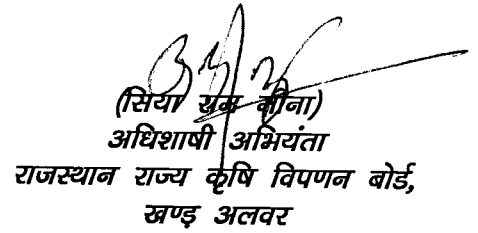 (सिया राम मीना)
अधिशाषी अभियंता
राजस्थान राज्य कृषि विपणन बोर्ड,
खण्ड़ अलवर